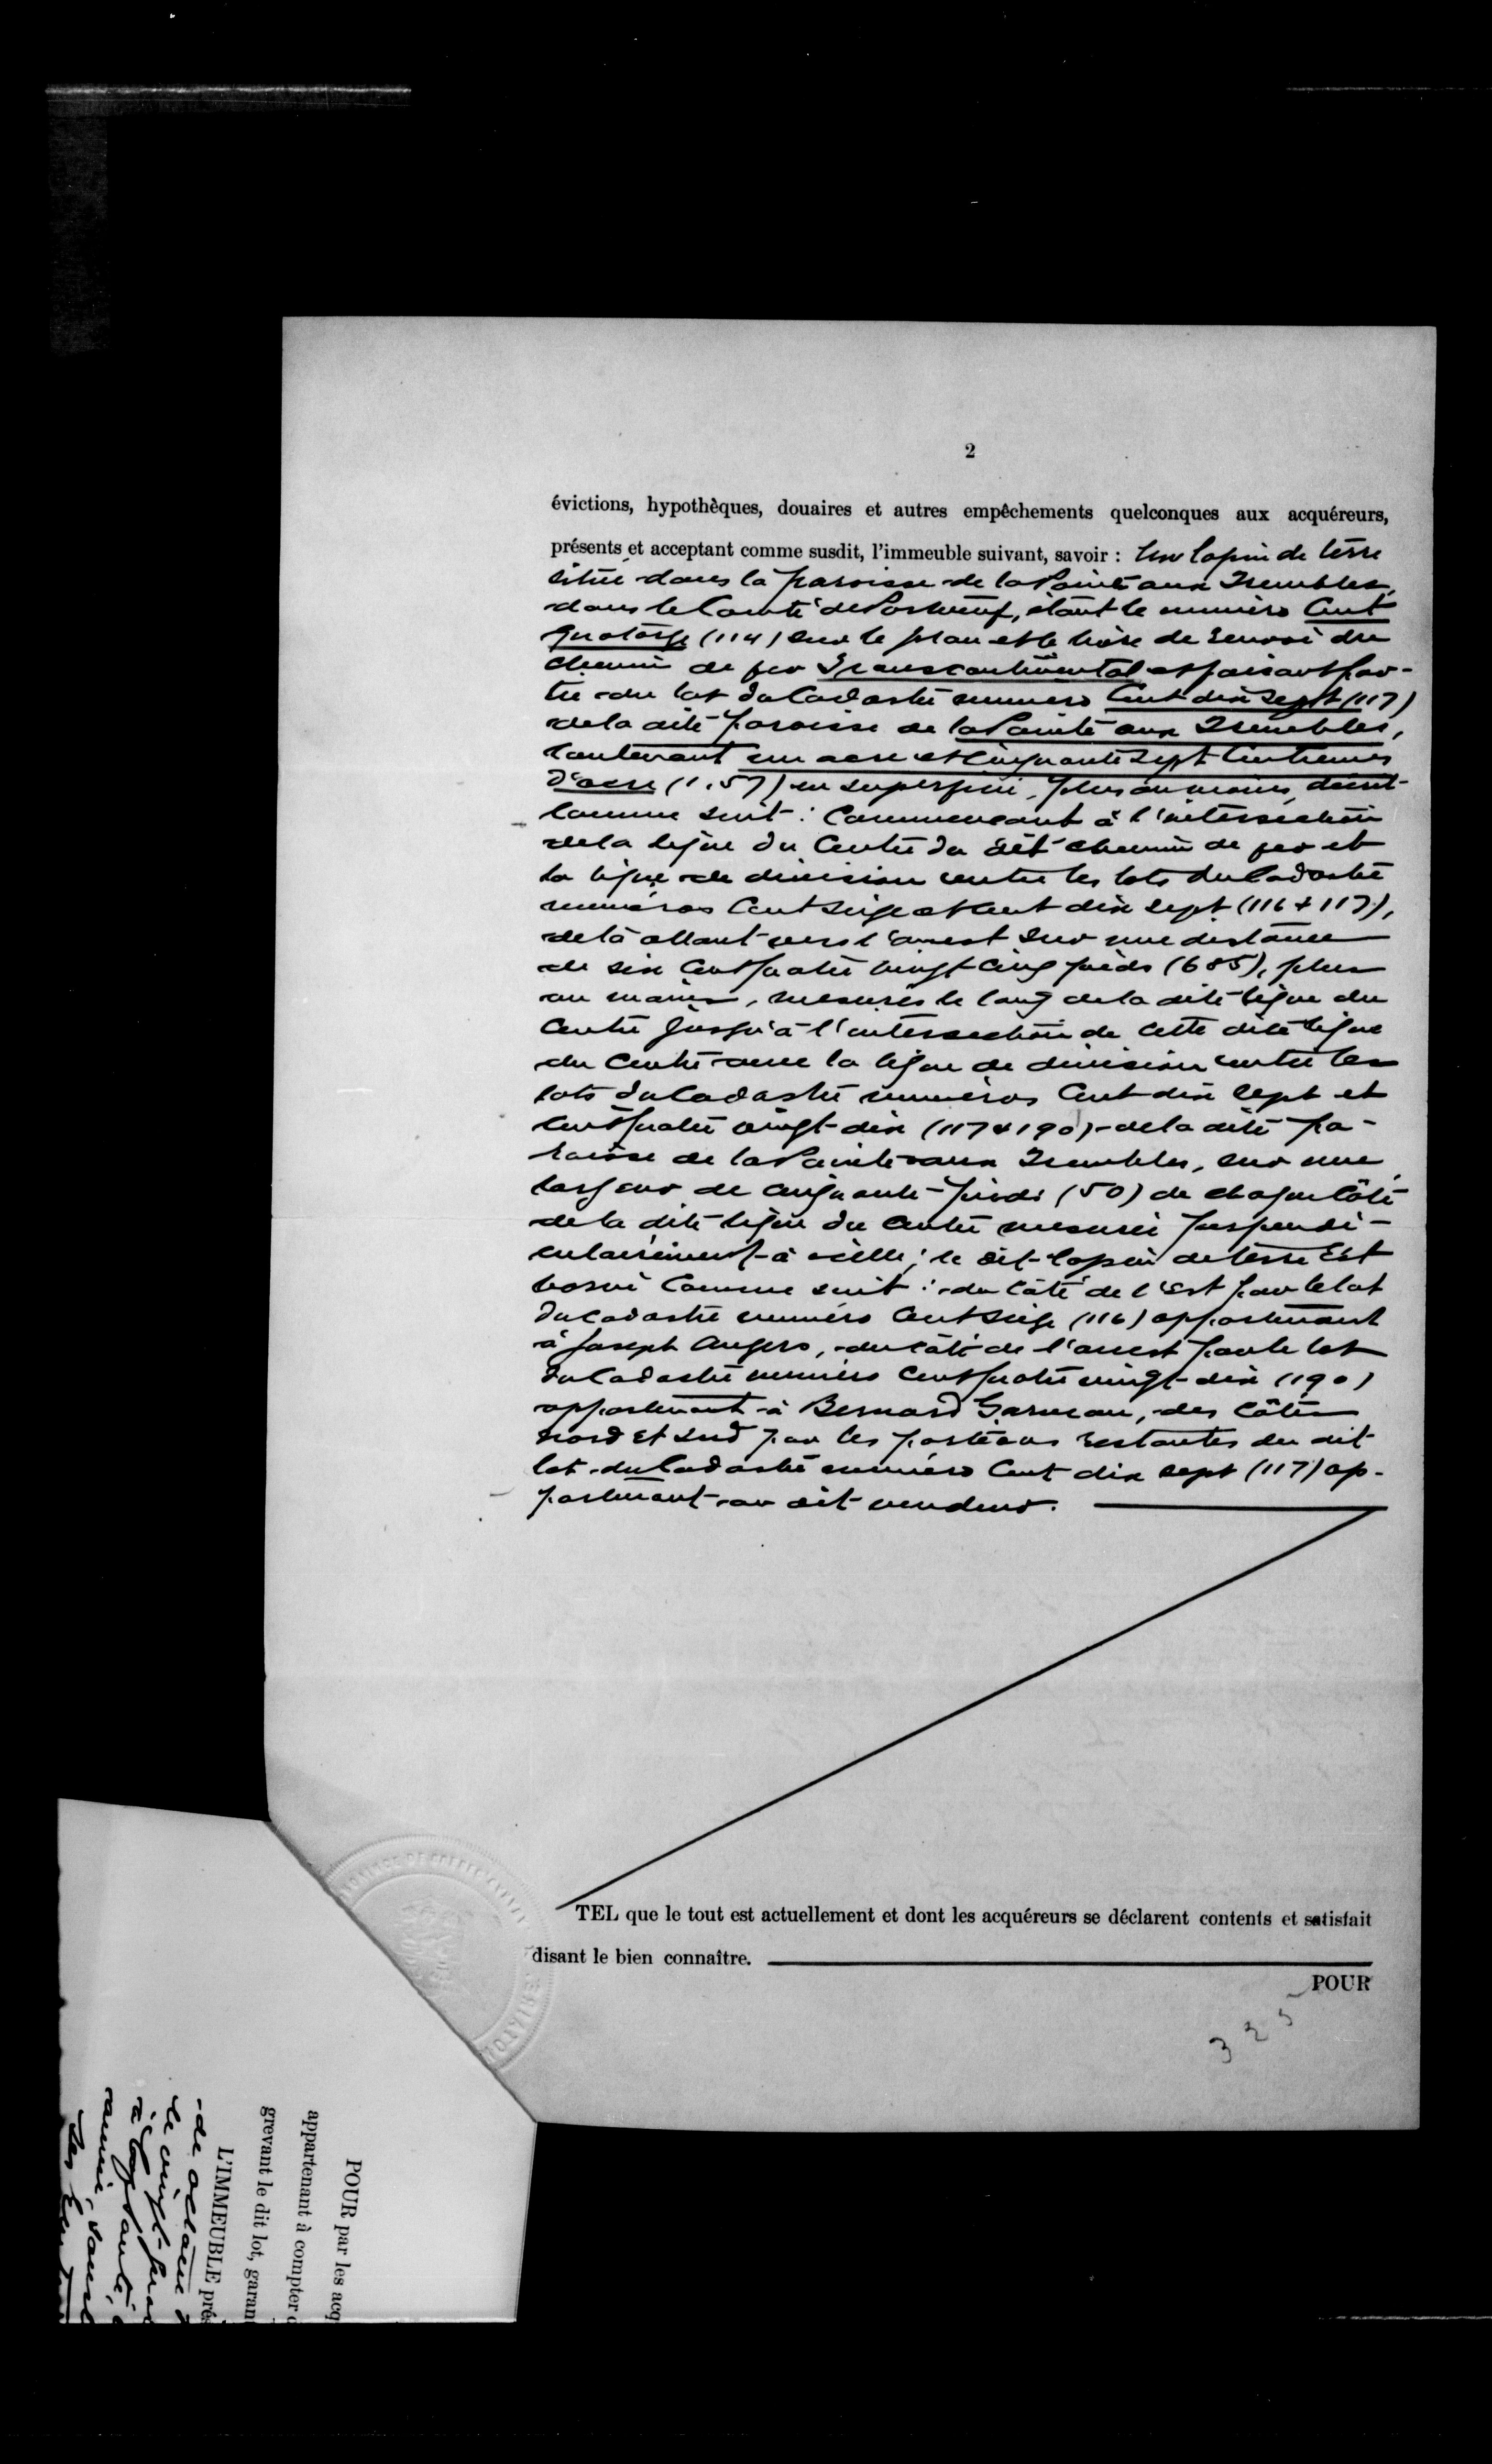 2
évictions, hypothèques, douaires et autres empêchements quelconques aux acquéreurs,
présents et acceptant comme susdit, l'immeuble suivant, savoir : Un lopin de terre
situé dans la paroisse de la Pointe aux Trembles,
dans le Comté de Portneuf, étant le numéro Cent
Quatorze (114) sur le plan et le livre de renvoi du
chemin de fer Transcontinental et faisant par-
tie du lot du Cadastre numéro Cent dix sept (117)
de la dite paroisse de la Pointe aux Trembles,
contenant un acre et cinquante sept centièmes
d'acre (1.57) en superficie, plus ou moins, décrit
comme suit : Commençant à l'intersection
de la ligne du Centre du dit chemin de fer et
la ligne de division entre les lots du Cadastre
numéros Cent seize et Cent dix sept (116 & 117),
de là allant vers l'ouest sur une distance
de six Cent quatre vingt cinq pieds (685), plus
ou moins, mesurés le long de la dite ligne du
Centre jusqu'à l'intersection de cette dite ligne
du Centre avec la ligne de division entre les
lots du Cadastre numéros Cent dix sept et
Cent quatre vingt-dix (117 & 190) de la dite pa-
roisse de la Pointe aux Trembles, sur une
largeur de cinquante pieds (50) de chaque côté
de la dite ligne du Centre mesurée perpendi-
culairement à icelle ; le dit lopin de terre Est
borné Comme suit : du côté de l'Est par le lot
du Cadastre numéro Cent seize (116) appartenant
à Joseph Angers, du côté de l'ouest par le lot
du Cadastre numéro Cent quatre vingt-dix (190)
appartenant à Bernard Garneau, des côtés
nord et sud par les parties restantes du dit
lot du Cadastre numéro Cent dix sept (117) ap-
partenant au dit vendeur.
TEL que le tout est actuellement et dont les acquéreurs se déclarent contents et satisfait
disant le bien connaître.
POUR
325
POUR par les acq
appartenant à compter
grevant le dit lot, garan
L'IMMEUBLE pré